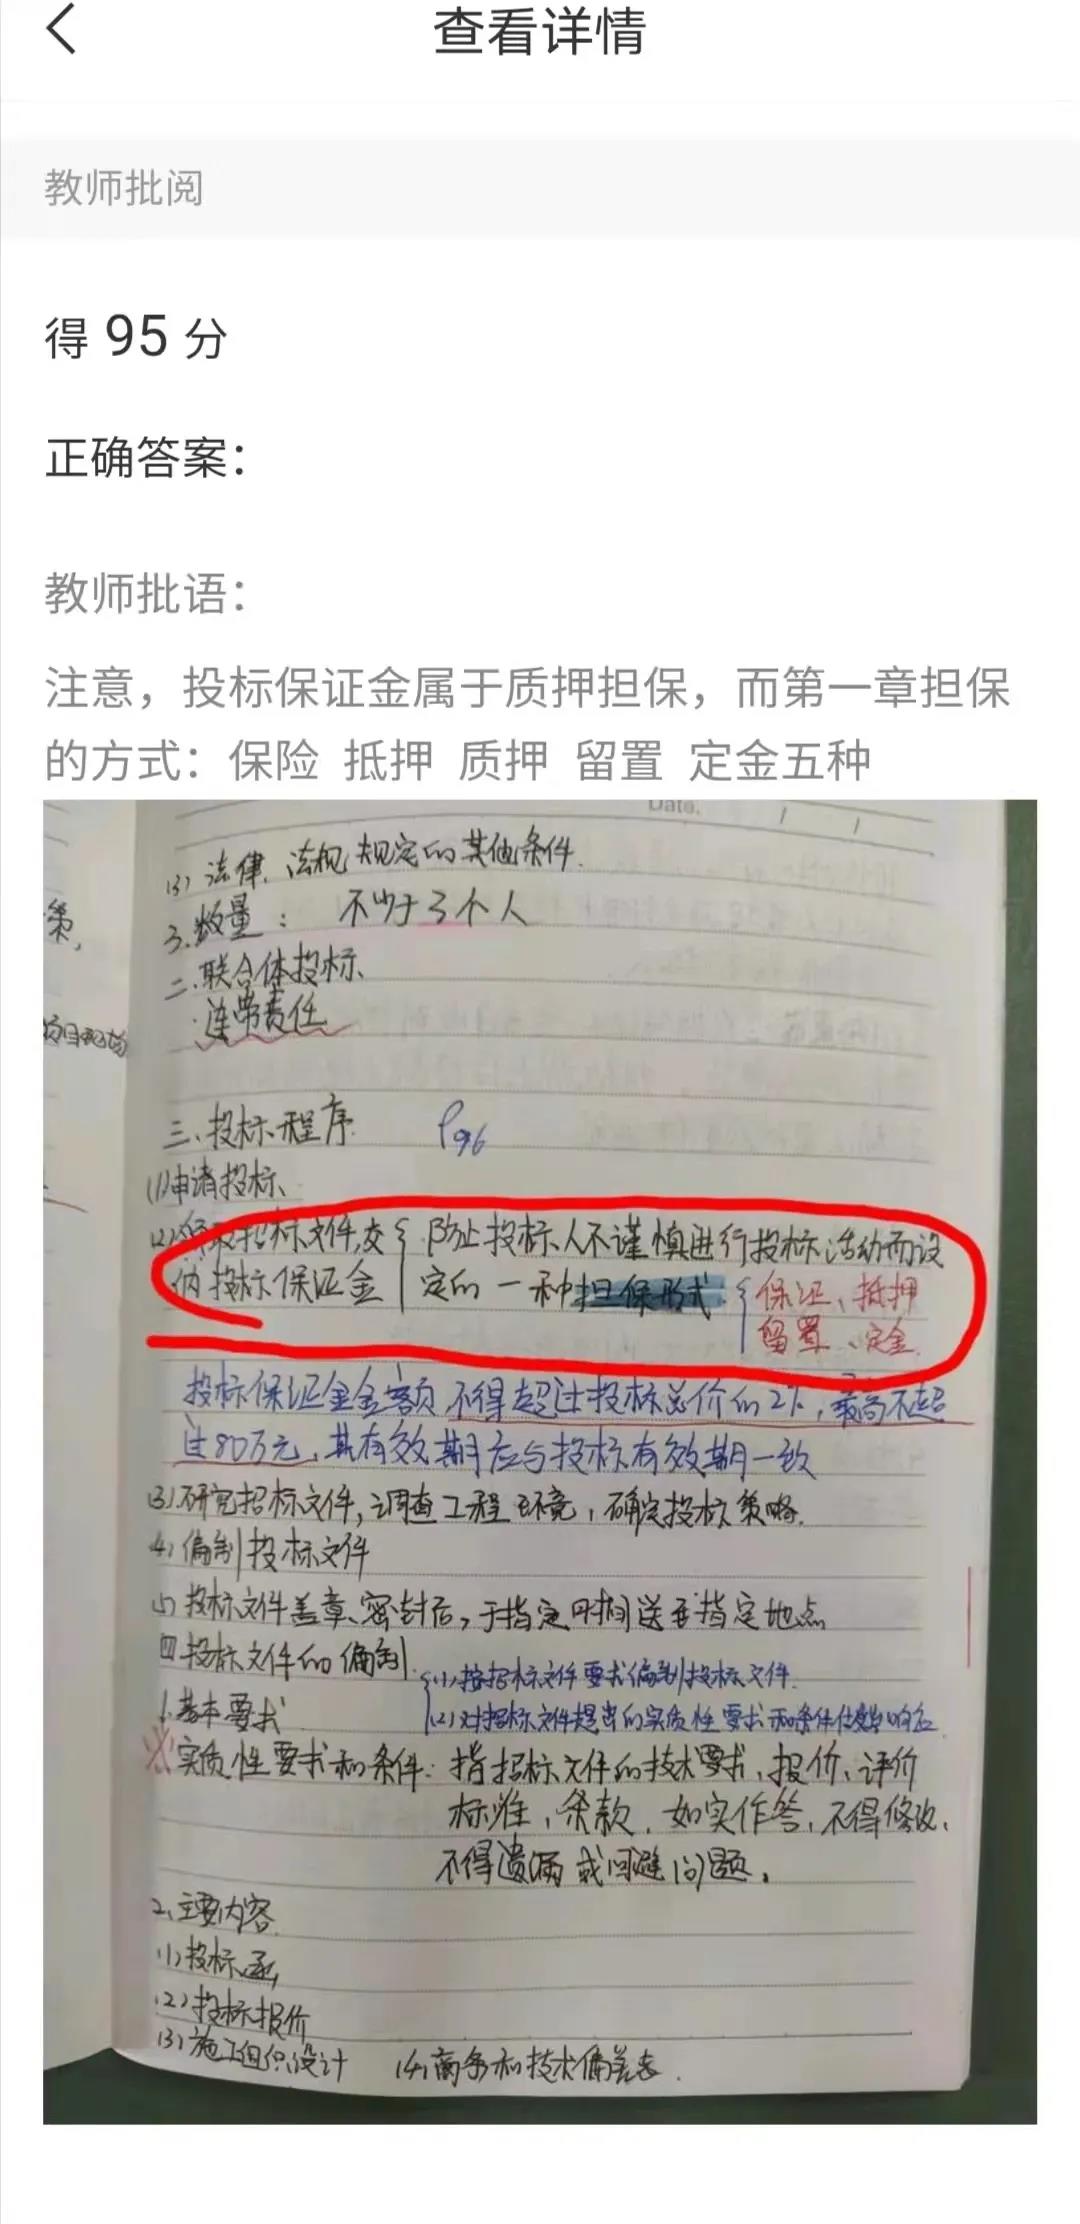 查看详情
教师批阅
得 95 分
正确答案：
教师批语：
注意，投标保证金属于质押担保，而第一章担保
的方式：保险 抵押 质押 留置 定金五种
Date.
(3) 法律、法规规定的其他条件.
3.数量： 不少于3个人
二.联合体投标
连带责任
三、投标程序 P96
(1)申请投标、
(2)领取招标文件,交 { 防止投标人不谨慎进行投标活动而设
纳投标保证金 定的一种担保形式 { 保证、抵押
留置、定金.
投标保证金金额不得超过投标总价的2%,最高不超
过80万元,其有效期应与投标有效期一致
(3)研究招标文件,调查工程环境,确定投标策略.
(4)编制投标文件
(5)投标文件盖章、密封后,于指定时间送至指定地点
四投标文件的编制.
{(1)按招标文件要求编制投标文件.
1.基本要求
(2)对招标文件提出的实质性要求和条件做出响应.
※实质性要求和条件：指招标文件的技术要求、报价、评价
标准,条款,如实作答,不得修改,
不得遗漏或回避问题.
2.主要内容
(1)投标函
(2)投标报价
(3)施工组织设计 (4)商务和技术偏差表.
策,